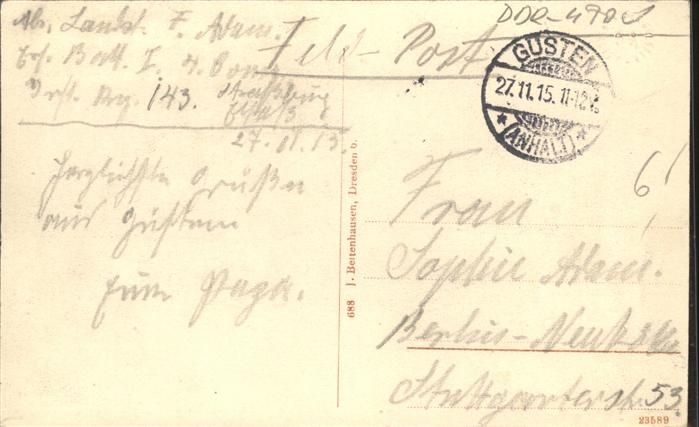 DDR-4908
Abs. Landst. F. Adam.
Ers. Batl. I. 4. Comp.
Inft. Reg. 143. Straßburg
Elsaß
27.11.15.
Feld-Post
GÜSTEN
27.11.15.11-12V.
(ANHALT)
Herzlichste Grüße
aus Güsten
Euer Papa.
688 J. Bettenhausen, Dresden 6.
6,
Frau
Sophie Adam.
Berlin-Neukölln
Stuttgarterstr. 53.
23589